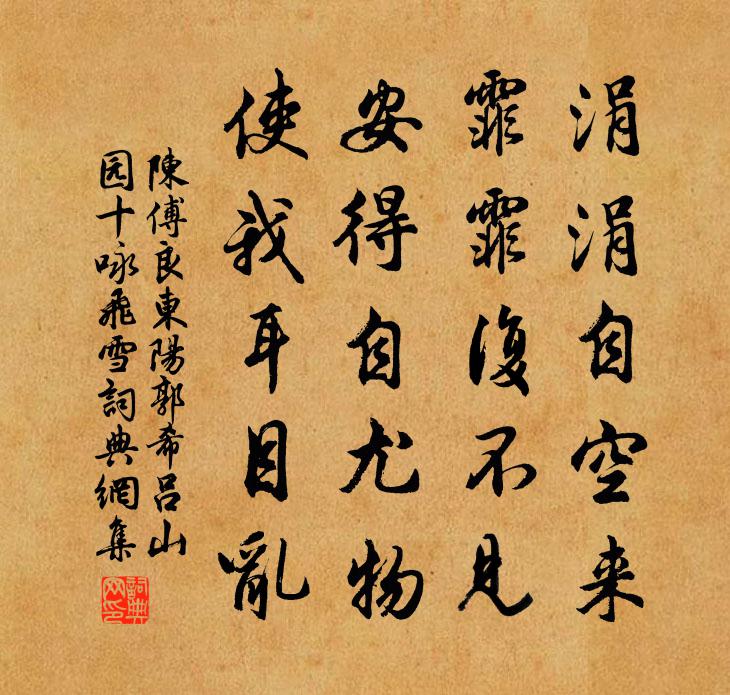 涓涓自空来
霏霏復不見
安得自尤物
使我耳目亂
陳傅良東陽郭希呂山
园十咏飛雪詞典網集
詞典网印